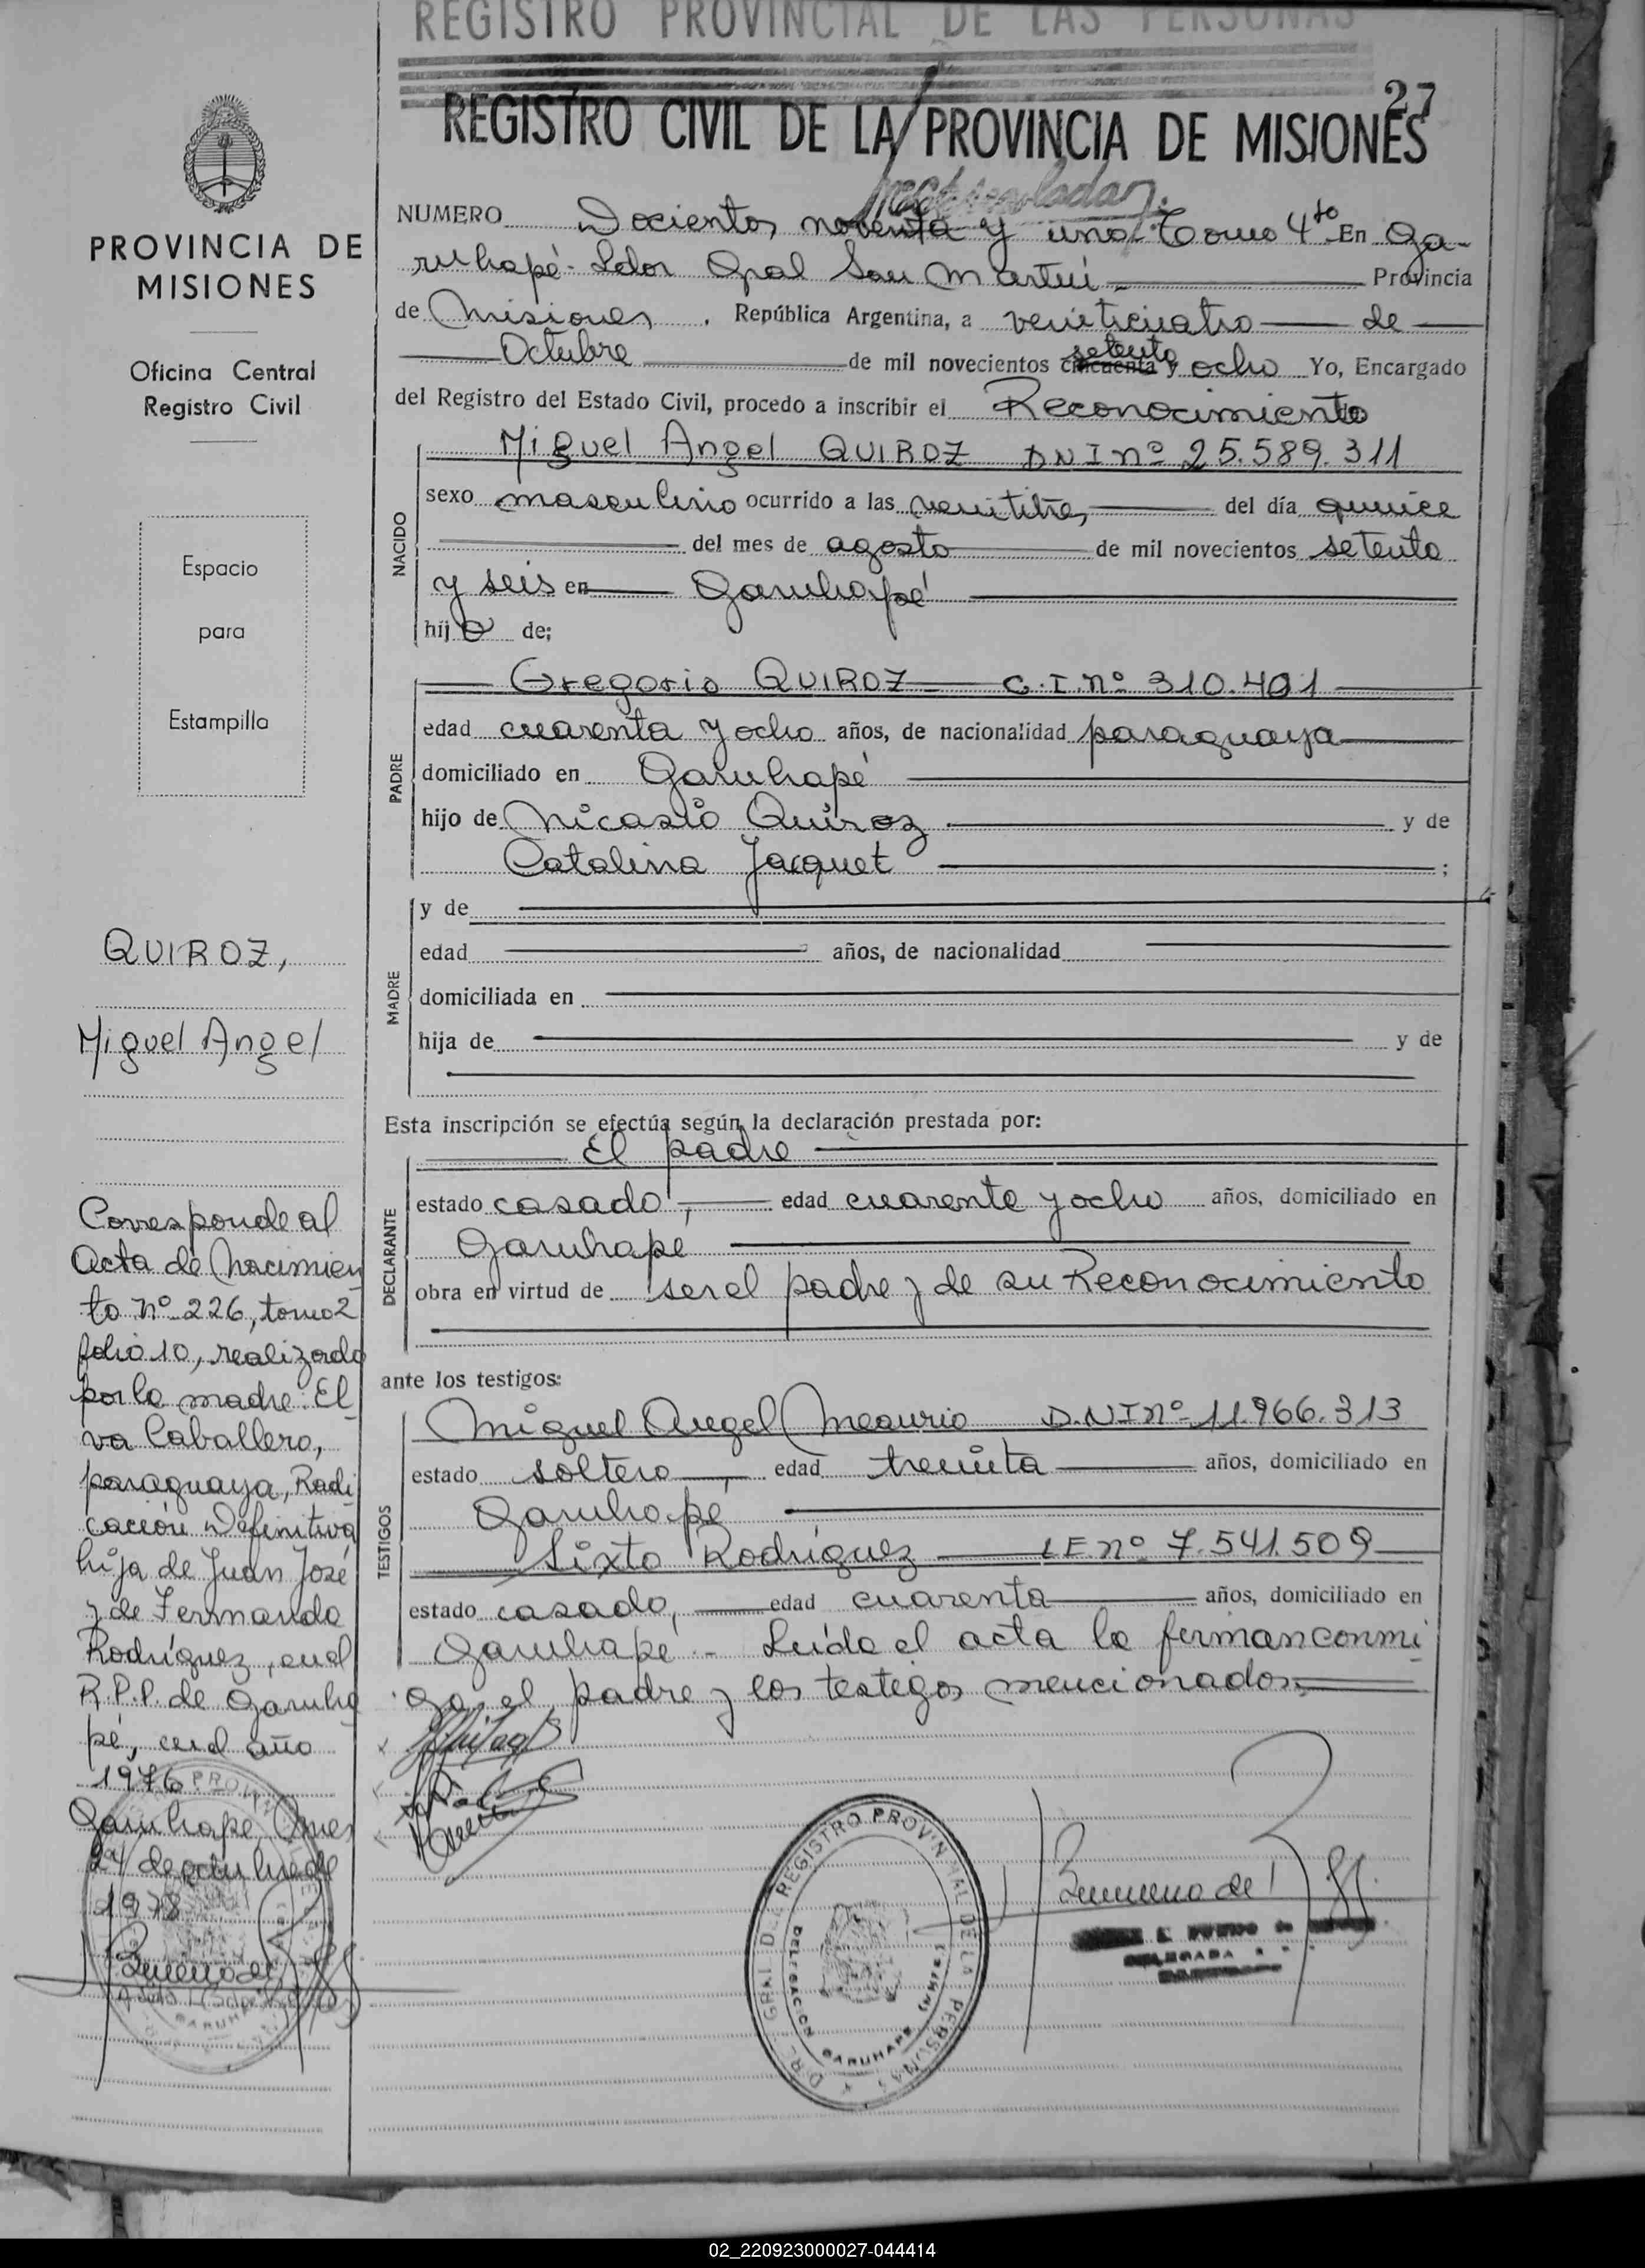 REGISTRO PROVINCIAL DE LAS PERSONAS
27
REGISTRO CIVIL DE LA PROVINCIA DE MISIONES
NUMERO Docientos noventa y uno Tomo 4to En Ga-
ruhapé - Ldor Gral San Martín Provincia
de Misiones, República Argentina, a veinticuatro de
Octubre de mil novecientos cincuenta setenta y ocho Yo, Encargado
del Registro del Estado Civil, procedo a inscribir el Reconocimiento
NACIDO
Miguel Angel QUIROZ DNI nº 25.589.311
sexo masculino ocurrido a las veintitres, del día quince
del mes de agosto de mil novecientos setenta
y seis en Garuhapé
hijo de;
PADRE
Gregorio QUIROZ C.I. nº 310.401
edad cuarenta y ocho años, de nacionalidad paraguaya
domiciliado en Garuhapé
hijo de Nicasio Quiroz y de
Catalina Jacquet ;
MADRE
y de
edad años, de nacionalidad
domiciliada en
hija de y de
Esta inscripción se efectúa según la declaración prestada por:
DECLARANTE
El padre
estado casado, edad cuarenta y ocho años, domiciliado en
Garuhapé
obra en virtud de ser el padre y de su Reconocimiento
ante los testigos:
TESTIGOS
Miguel Angel Meaurio D.N.I nº 11.966.313
estado soltero, edad treinta años, domiciliado en
Garuhapé
Sixto Rodríguez L.E. nº 7.541.509
estado casado, edad cuarenta años, domiciliado en
Garuhapé - Leida el acta la firman conmi
go, el padre y los testigos mencionados
PROVINCIA DE
MISIONES
Oficina Central
Registro Civil
Espacio
para
Estampilla
QUIROZ,
Miguel Angel
Corresponde al
Acta de Nacimien
to nº 226, tomo 2
folio 10, realizado
por la madre: El
va Caballero,
paraguaya, Radi
cación Definitiva
hija de Juan José
y de Fernanda
Rodríguez, en el
R.P.P. de Garuha
pé, en el año
1976
Garuhapé, Mnes
24 de octubre de
1978
DREC. GRAL DEL REGISTRO PROVINCIAL DE LA PERSONAS
DELEGACION GARUHAPE (MNES)
02_220923000027-044414